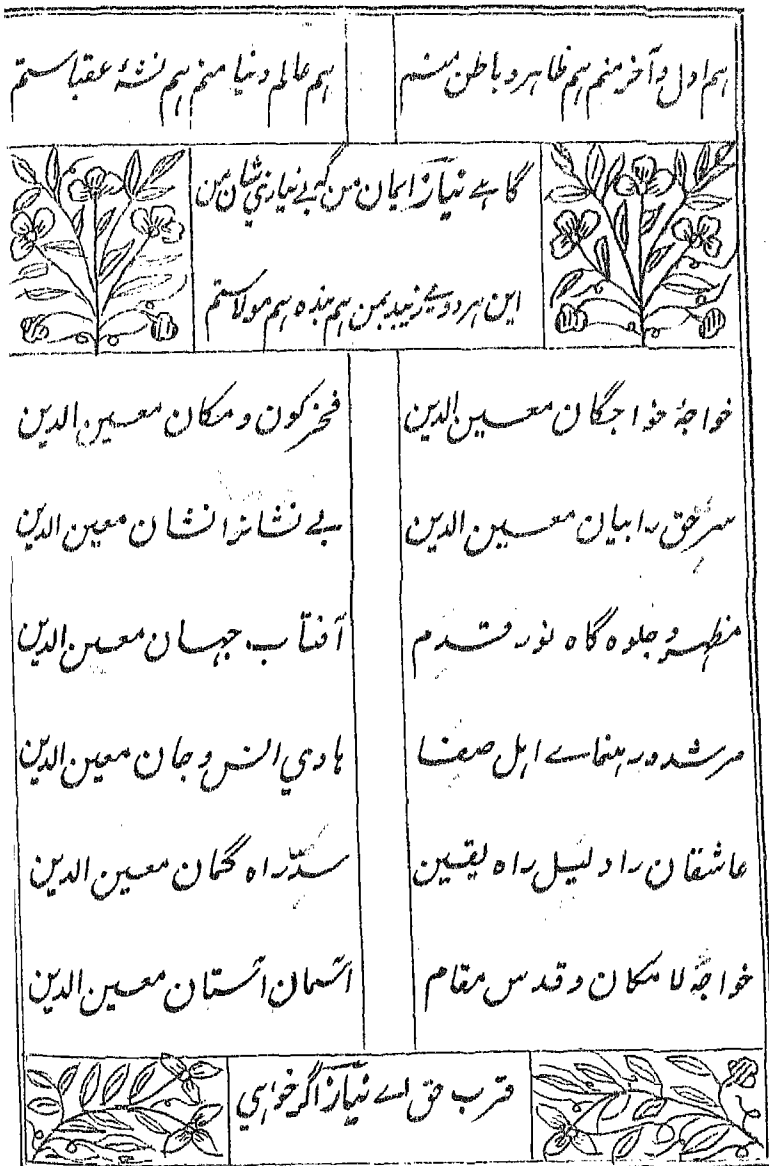 هم اول و آخر منم هم ظاهر و باطن منم هم عالم دنیا منم هم نشهٔ عقباستم
گاہے نیاز ایمان من گہ بے نیازي شان من
این هر دو مے زیبد بمن هم بنده هم مولاستم
خواجهٔ خواجگان معین الدین فخر کون و مکان معین الدین
سرِّ حق را بیان معین الدین بے نشانرا نشان معین الدین
مظهر و جلوه گاه نور قدم آفتاب جهان معین الدین
مرشد و رهنماے اهل صفا هادي انس و جان معین الدین
عاشقان را دلیل راه یقین سدّ راه گمان معین الدین
خواجهٔ لا مکان و قدس مقام آسمان آستان معین الدین
قرب حق اے نیاز اگر خواهي